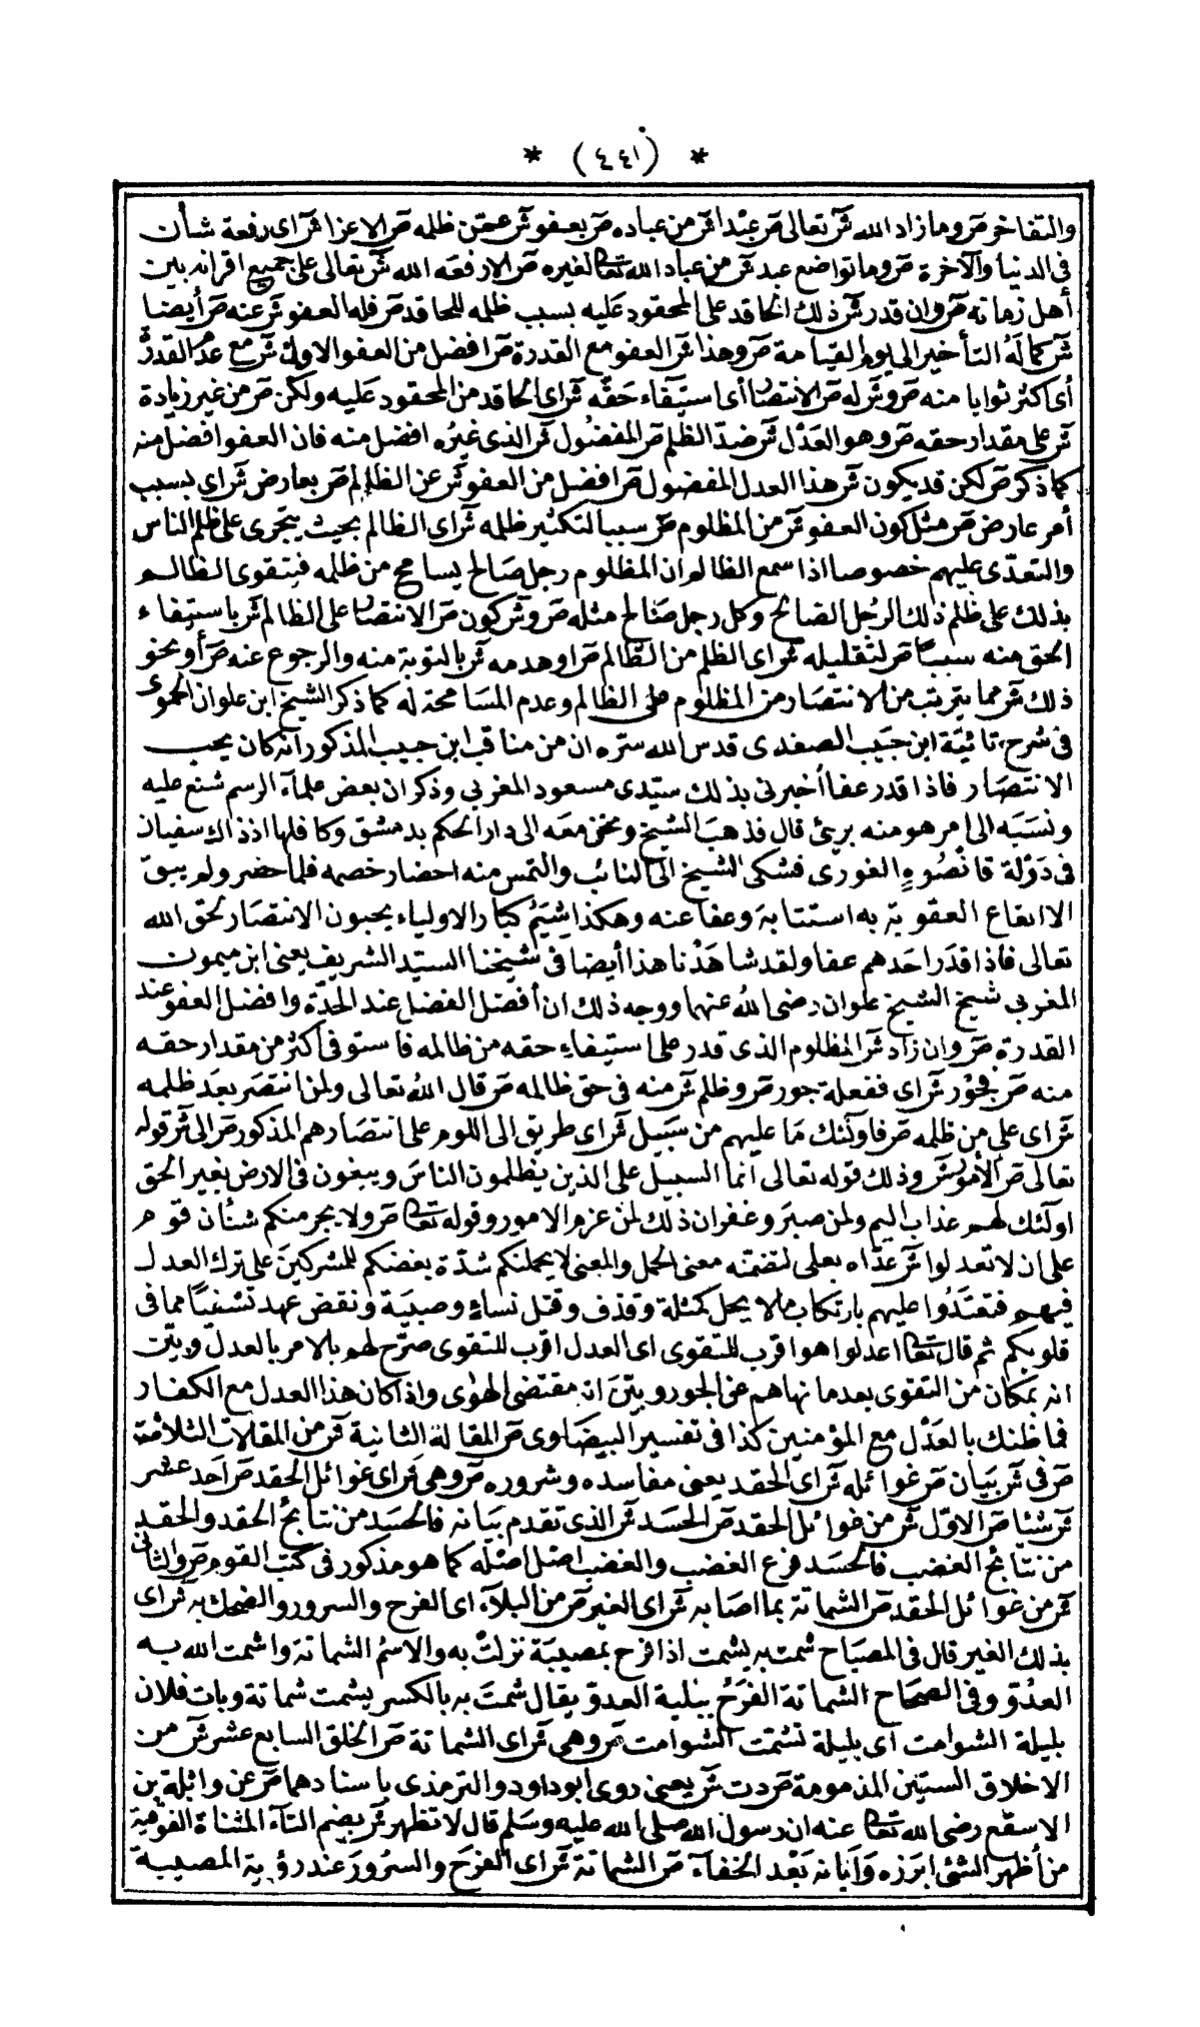 * (٤٤١) *
والتفاخر ص وما زاد الله ش تعالى ص عبدا ش من عباده ص بعفو ش عمن ظلمه ص الا عزا ش اى رفعة شأن
فى الدنيا والآخرة ص وما تواضع عبد ش من عباد الله تعالى لغيره ص الا رفعه الله ش تعالى على جميع اقرانه بين
أهل زمانه ص وان قدر ش ذلك الحاقد على المحقود عليه بسبب ظلمه للحاقد ص فله العفو ش عنه ص أيضا
ش كما له التأخير الى يوم القيامة ص وهذا ش العفو مع القدرة ص افضل من العفو الاول ش مع عدم القدرة
أى اكثر ثوابا منه ص و ش له ص الانتصار أى استيفاء حقه ش اى الحاقد من المحقود عليه ولكن ص من غير زيادة
ش على مقدار حقه ص وهو العدل ش ضد الظلم ص المفضول ش الذى غيره افضل منه فان العفو افضل منه
كما ذكر ص لكن قد يكون ش هذا العدل المفضول ص افضل من العفو ش عن الظالم ص بعارض ش اى بسبب
أمر عارض ص مثل كون العفو ش من المظلوم ص سببا لتكثير ظلمه ش اى الظالم بحيث يتجرى على ظلم الناس
والتعدّى عليهم خصوصا اذا سمع الظالم ان المظلوم رجل صالح يسامح من ظلمه فيتقوى الظالم
بذلك على ظلم ذلك الرجل الصالح وكل رجل صالح مثله ص و ش كون ص الانتصار على الظالم ش باستيفاء
الحق منه سببا ص لتقليله ش اى الظلم من الظالم ص او هدمه ش بالتوبة منه والرجوع عنه ص أو نحو
ذلك ش مما يترتب من الانتصار من المظلوم على الظالم وعدم المسامحة له كما ذكر الشيخ ابن علوان الحموى
فى شرح تائية ابن حبيب الصفدى قدس الله سره ان من مناقب ابن حبيب المذكور انه كان يحب
الانتصار فاذا قدر عفا أخبرنى بذلك سيدى مسعود المغربي وذكر ان بعض علماء الرسم شنع عليه
ونسبه الى امر هو منه بريئ قال فذهب الشيخ ونحن معه الى دار الحكم بدمشق وكافلها اذ ذاك سفيان
فى دولة قانصوه الغورى فشكى الشيخ الى النائب والتمس منه احضار خصمه فلما حضر ولم يبق
الا ايقاع العقوبة به استتابة وعفا عنه وهكذا شيم كبار الاولياء يحبون الانتصار لحق الله
تعالى فاذا قدر احدهم عفا ولقد شاهدنا هذا أيضا فى شيخنا السيد الشريف يعنى ابن ميمون
المغربي شيخ الشيخ علوان رضى الله عنهما ووجه ذلك ان أفضل الفضل عند الحدّة وافضل العفو عند
القدرة ص وان زاد ش المظلوم الذى قدر على استيفاء حقه من ظالمه فاستوفى اكثر من مقدار حقه
منه ص فجور ش اى ففعله جور ص وظلم ش منه فى حق ظالمه ص قال الله تعالى ولمن انتصر بعد ظلمه
ش اى على من ظلمه ص فاولئك ما عليهم من سبيل ش اى طريق الى اللوم على انتصارهم المذكور ص الى ش قوله
تعالى ص الأمور ش وذلك قوله تعالى انما السبيل على الذين يظلمون الناس ويبغون فى الارض بغير الحق
اولئك لهم عذاب اليم ولمن صبر وغفر ان ذلك لمن عزم الامور وقوله تعالى ص ولا يجرمنكم شنأن قوم
على ان لا تعدلوا ش عدّاه بعلى لتضمنه معنى الحمل والمعنى لا يحملنكم شدّة بغضكم للمشركين على ترك العدل
فيهم فتعتدوا عليهم بارتكاب ما لا يحل كمثلة وقذف وقتل نساء وصبية ونقض عهد تشفيا مما فى
قلوبكم ثم قال تعالى اعدلوا هوا قرب للتقوى اى العدل اقرب للتقوى صرّح لهم بالامر بالعدل وبيّن
انه بمكان من التقوى بعد ما نهاهم عن الجور وبيّن انه مقتضى الهوى واذا كان هذا العدل مع الكفار
فما ظنك بالعدل مع المؤمنين كذا فى تفسير البيضاوى ص المقالة الثانية ش من المقالات الثلاثة
ص فى ش بيان ص غوائله ش اى الحقد يعنى مفاسده وشروره ص وهى ش اى غوائل الحقد ص أحد عشر
ش شيئا ص الاوّل ش من غوائل الحقد ص الحسد ش الذى تقدم بيانه فالحسد من نتائج الحقد والحقد
من نتائج الغضب فالحسد فرع الغضب والغضب اصل اصله كما هو مذكور فى كتب القوم ص والثانى
ش من غوائل الحقد ص الشماتة بما اصابه ش اى الغير ص من البلاء اى الفرح والسرور والضحك به ش اى
بذلك الغير قال فى المصباح شمت به يشمت اذا فرح بمصيبة نزلت به والاسم الشماتة واشمت الله به
العدوّ وفى الصحاح الشماتة الفرح ببلية العدوّ يقال شمت به بالكسر يشمت شماتة وبات فلان
بليلة الشوامت اى بليلة تشمت الشوامت ص وهى ش اى الشماتة ص الخلق السابع عشر ش من
الاخلاق الستين المذمومة ص دت ش يعنى روى ابو داود والترمذى باسنادهما ص عن واثلة بن
الاسقع رضى الله تعالى عنه ان رسول الله صلى الله عليه وسلم قال لا تظهر ش بضم التاء المثناة الفوقية
من أظهر الشئ ابرزه وأبانه بعد الخفاء ص الشماتة ش اى الفرح والسرور عند رؤية المصيبة